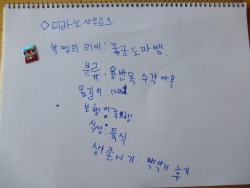 ◇티라노사우르스
학명의 의미: 폭군도마뱀
분류: 용반목 수각아목
몸길이: 12m
보행: 이족보행
식성: 육식
생존시기: 백악기 후기